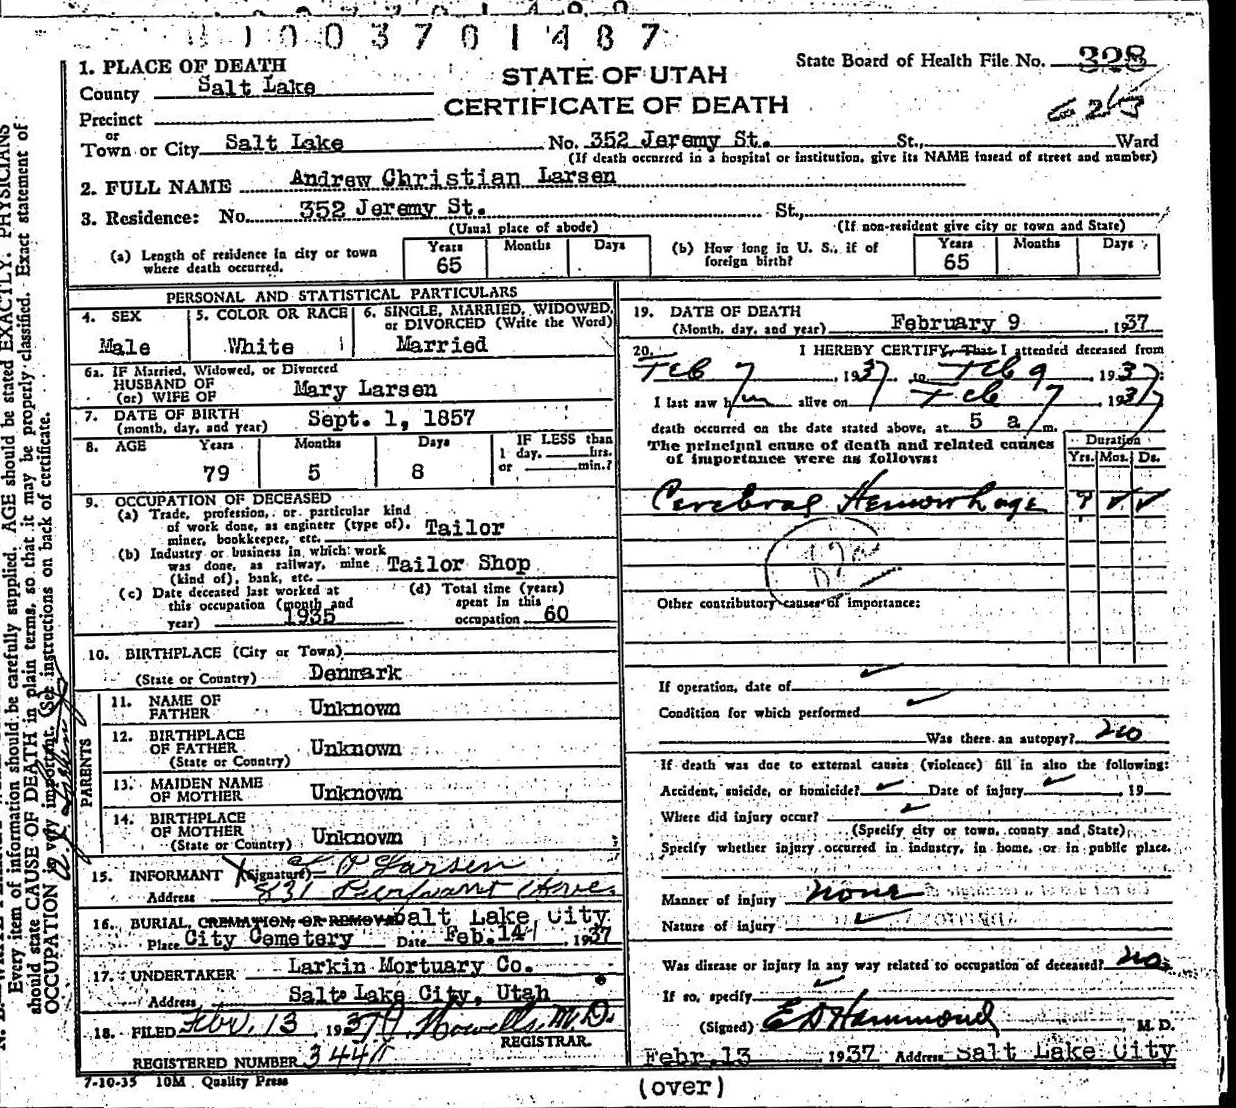 1003701487
1. PLACE OF DEATH
County Salt Lake
Precinct
or
Town or City Salt Lake No. 352 Jeremy St. St., Ward
(If death occurred in a hospital or institution, give its NAME insead of street and number)
STATE OF UTAH
CERTIFICATE OF DEATH
State Board of Health File No. 328
213
2. FULL NAME Andrew Christian Larsen
3. Residence: No. 352 Jeremy St. St.,
(Usual place of abode) (If non-resident give city or town and State)
(a) Length of residence in city or town where death occurred. Years 65 Months Days
(b) How long in U. S., if of foreign birth? Years 65 Months Days
PERSONAL AND STATISTICAL PARTICULARS
4. SEX Male
5. COLOR OR RACE White
6. SINGLE, MARRIED, WIDOWED, or DIVORCED (Write the Word) Married
6a. IF Married, Widowed, or Divorced
HUSBAND OF
(or) WIFE OF Mary Larsen
7. DATE OF BIRTH
(month, day, and year) Sept. 1, 1857
8. AGE Years 79 Months 5 Days 8 IF LESS than
1 day, hrs.
or min.?
9. OCCUPATION OF DECEASED
(a) Trade, profession, or particular kind
of work done, as engineer (type of),
miner, bookkeeper, etc. Tailor
(b) Industry or business in which work
was done, as railway, mine
(kind of), bank, etc. Tailor Shop
(c) Date deceased last worked at
this occupation (month and
year) 1935
(d) Total time (years)
spent in this
occupation 60
10. BIRTHPLACE (City or Town)
(State or Country) Denmark
PARENTS
11. NAME OF
FATHER Unknown
12. BIRTHPLACE
OF FATHER
(State or Country) Unknown
13. MAIDEN NAME
OF MOTHER Unknown
14. BIRTHPLACE
OF MOTHER
(State or Country) Unknown
15. INFORMANT (Signature) Larsen
Address 831
16. BURIAL, CREMATION, OR REMOVAL Salt Lake City
Place City Cemetery Date Feb. 14, 1937
17. UNDERTAKER Larkin Mortuary Co.
Address Salt Lake City, Utah
18. FILED Febr. 13, 1937 Howells M.D.
REGISTRAR.
REGISTERED NUMBER
7-10-35 10M Quality Press
19. DATE OF DEATH
(Month, day, and year) February 9, 1937
20. I HEREBY CERTIFY, That I attended deceased from
Feb 7, 1937, to Feb 9, 1937:
I last saw him alive on Feb 7, 1937
death occurred on the date stated above, at 5 a m.
The principal cause of death and related causes
of importance were as follows:
Duration
Yrs. Mos. Ds.
Cerebral Hemorrhage
Other contributory causes of importance:
If operation, date of
Condition for which performed
Was there an autopsy? no
If death was due to external causes (violence) fill in also the following:
Accident, suicide, or homicide? Date of injury , 19
Where did injury occur?
(Specify city or town, county and State)
Specify whether injury occurred in industry, in home, or in public place.
Manner of injury none
Nature of injury
Was disease or injury in any way related to occupation of deceased? no
If so, specify
(Signed) E D Hammond, M. D.
Febr. 13 1937 Address Salt Lake City
(over)
Every item of information should be carefully supplied. AGE should be stated EXACTLY. PHYSICIANS
should state CAUSE OF DEATH in plain terms, so that it may be properly classified. Exact statement of
OCCUPATION is very important. (See instructions on back of certificate.